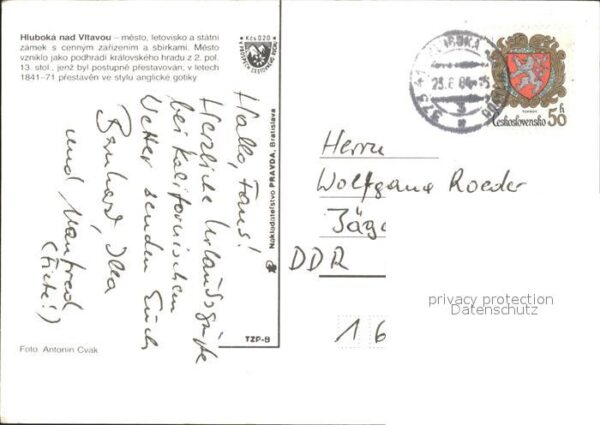 Hluboká nad Vltavou – město, letovisko a státní
zámek s cenným zařízením a sbírkami. Město
vzniklo jako podhradí královského hradu z 2. pol.
13. stol., jenž byl postupně přestavován; v letech
1841–71 přestavěn ve stylu anglické gotiky
Kčs 0,20
Hallo, Fans!
Herzliche Urlaubsgrüße
bei kalifornischem
Wetter senden Euch
Bernhard, Ilka
und Manfred
Foto: Antonín Cvak
Nakladateľstvo PRAVDA, Bratislava
TZP-B
23.8.
Československo 50 h
Herrn
Wolfgang Roeder
Jäge
DDR
16
privacy protection
Datenschutz